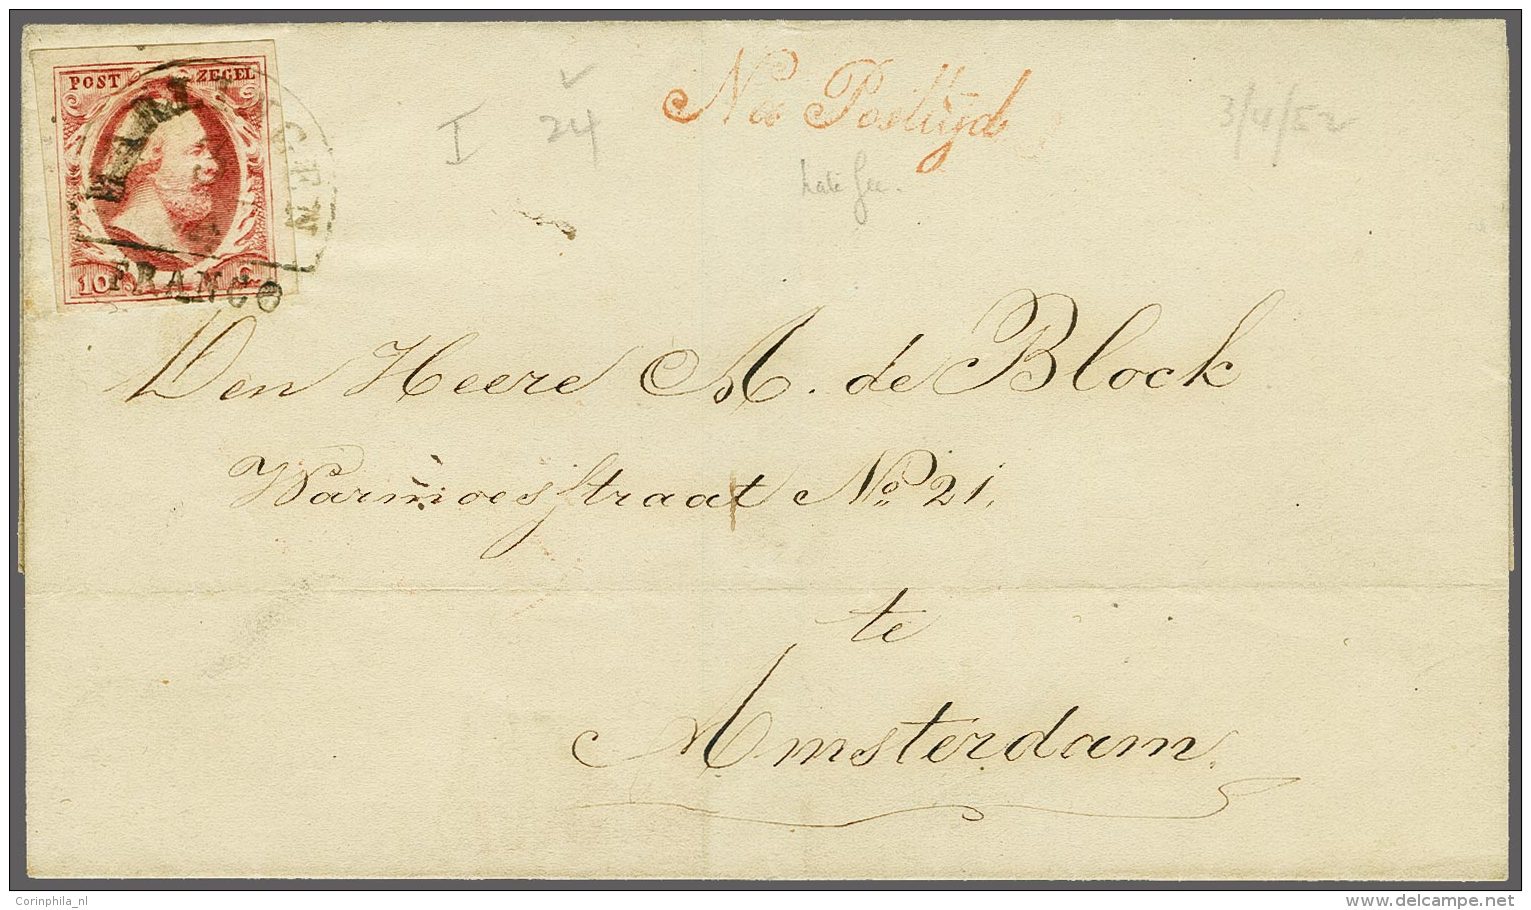 POST ZEGEL
HARLINGEN
10 C.
FRANCO
I
24
Na Posttijd
3/4/52
Late fee.
Den Heere A. de Block
Warmoesstraat No 21.
te
Amsterdam.
Corinphila_nl
www.delcampe.net